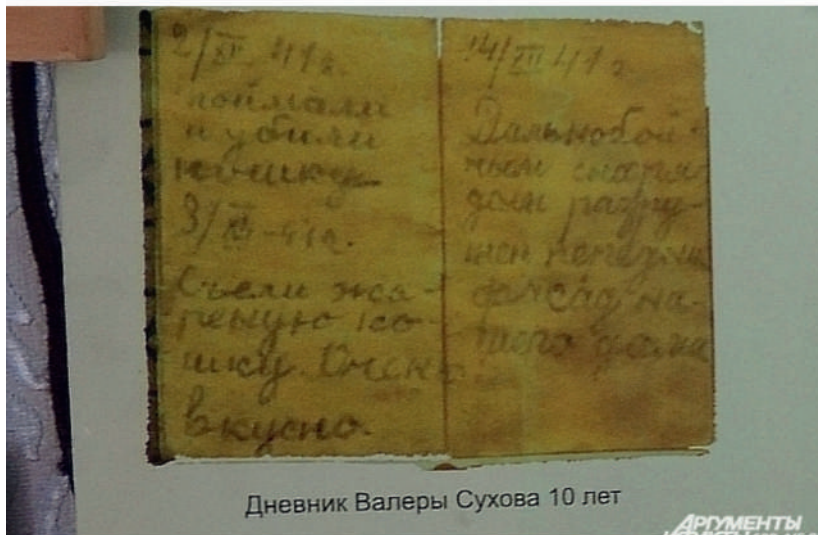 2/XII 41 г.
поймали
и убили
кошку
3/XII-41 г.
Съели жа-
реную ко-
шку. Очень
вкусно.
14/XII 41 г
Дальнобой-
ным снаря-
дом разру-
шен
фасад на-
шего дома
Дневник Валеры Сухова 10 лет
АРГУМЕНТЫ